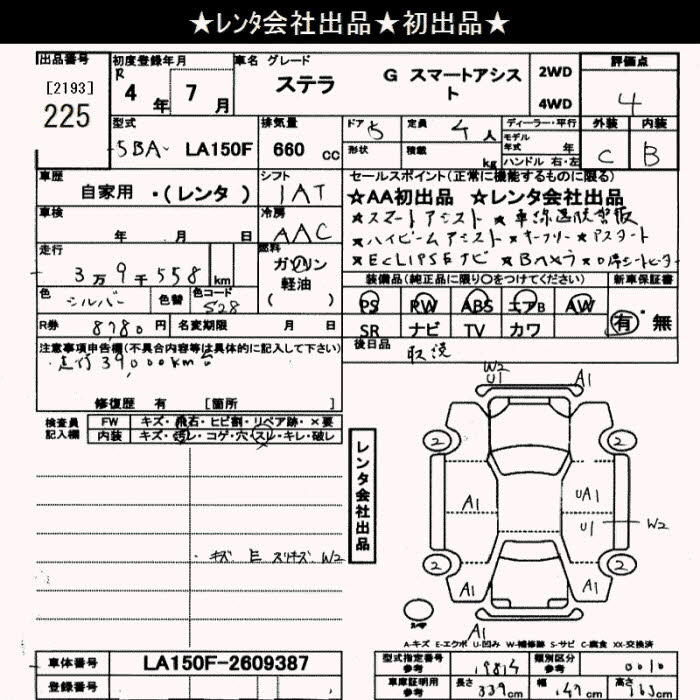 ★レンタ会社出品★初出品★
出品番号
[2193]
225
初度登録年月
R 4 年 7 月
車名 グレード
ステラ
G スマートアシスト
2WD
4WD
評価点
4
型式
5BA- LA150F
排気量
660 cc
ドア 5
形状
定員 4人
積載 kg
ディーラー・平行
モデル年式 年
ハンドル 右・左
外装
C
内装
B
車歴
自家用 ・(レンタ )
シフト
IAT
車検
年 月 日
冷房
AAC
走行
3万9千558 km
燃料
ガソリン
軽油
( )
色
シルバー
色替
色コード
S28
R券 8780円
名変期限 月 日
セールスポイント(正常に機能するものに限る)
★AA初出品 ★レンタ会社出品
★スマートアシスト ★車線逸脱警報
★ハイビームアシスト ★キーフリー ★Pスタート
★ECLIPSEナビ ★Bカメラ
装備品(純正品に限り○をつけてください)
新車保証書
PS PW ABS エアB AW
SR ナビ TV カワ
有・無
後日品
取説
注意事項申告欄(不具合内容等は具体的に記入して下さい)
走行39,000km台
修復歴 有 [箇所 ]
検査員記入欄
FW キズ・飛石・ヒビ割・リペア跡・×要
内装 キズ・汚レ・コゲ・穴・スレ・キレ・破レ
・キズ E スリキズ W2
レンタ会社出品
W2
U1
A1
2
2
A1
UA1
U1
W2
2
2
A1
A1
A1
スペア
A-キズ E-エクボ U-凹み W-補修跡 S-サビ C-腐食 XX-交換済
車体番号
LA150F-2609387
登録番号
型式指定番号参考
19814
類別区分参考
0010
車庫証明用参考
長さ 339cm
幅 147cm
高さ 163cm